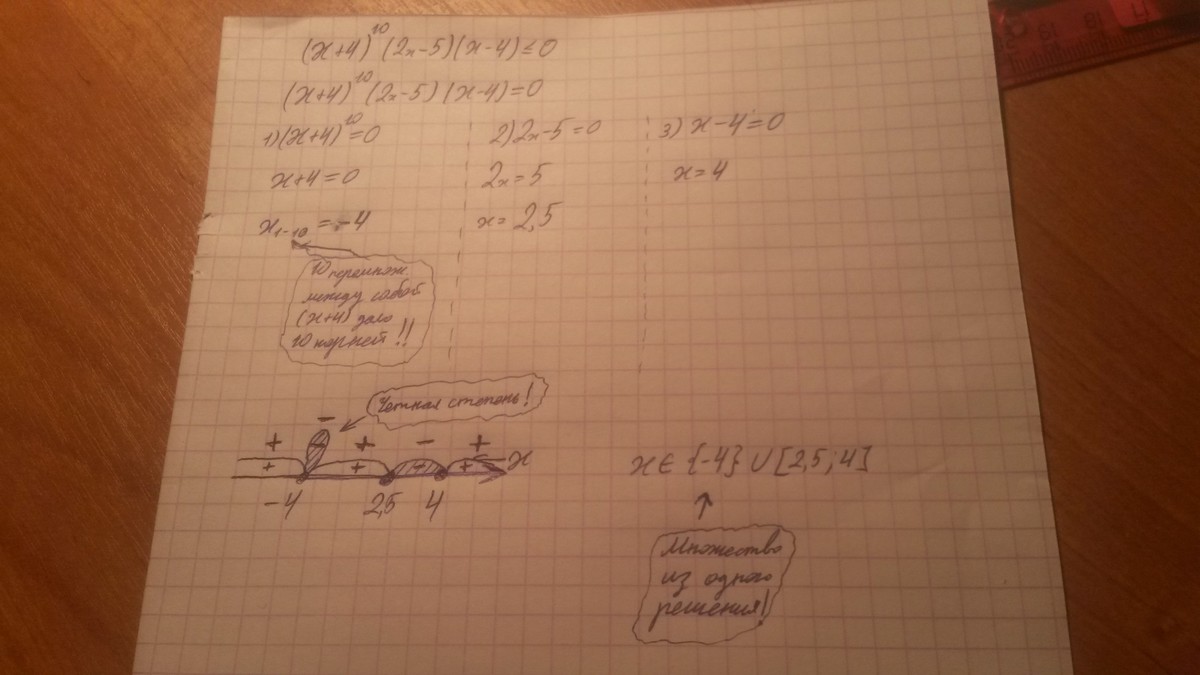 (x+4)¹⁰(2x-5)(x-4)≤0
(x+4)¹⁰(2x-5)(x-4)=0
1)(x+4)¹⁰=0
x+4=0
x₁₋₁₀=-4
10 перемнож.
между собой
(x+4) дало
10 корней!!
2)2x-5=0
2x=5
x=2,5
3) x-4=0
x=4
Четная степень!
-
+ + - +
+ - + + + x
-4 2,5 4
x∈{-4}∪[2,5;4]
Множество
из одного
решения!